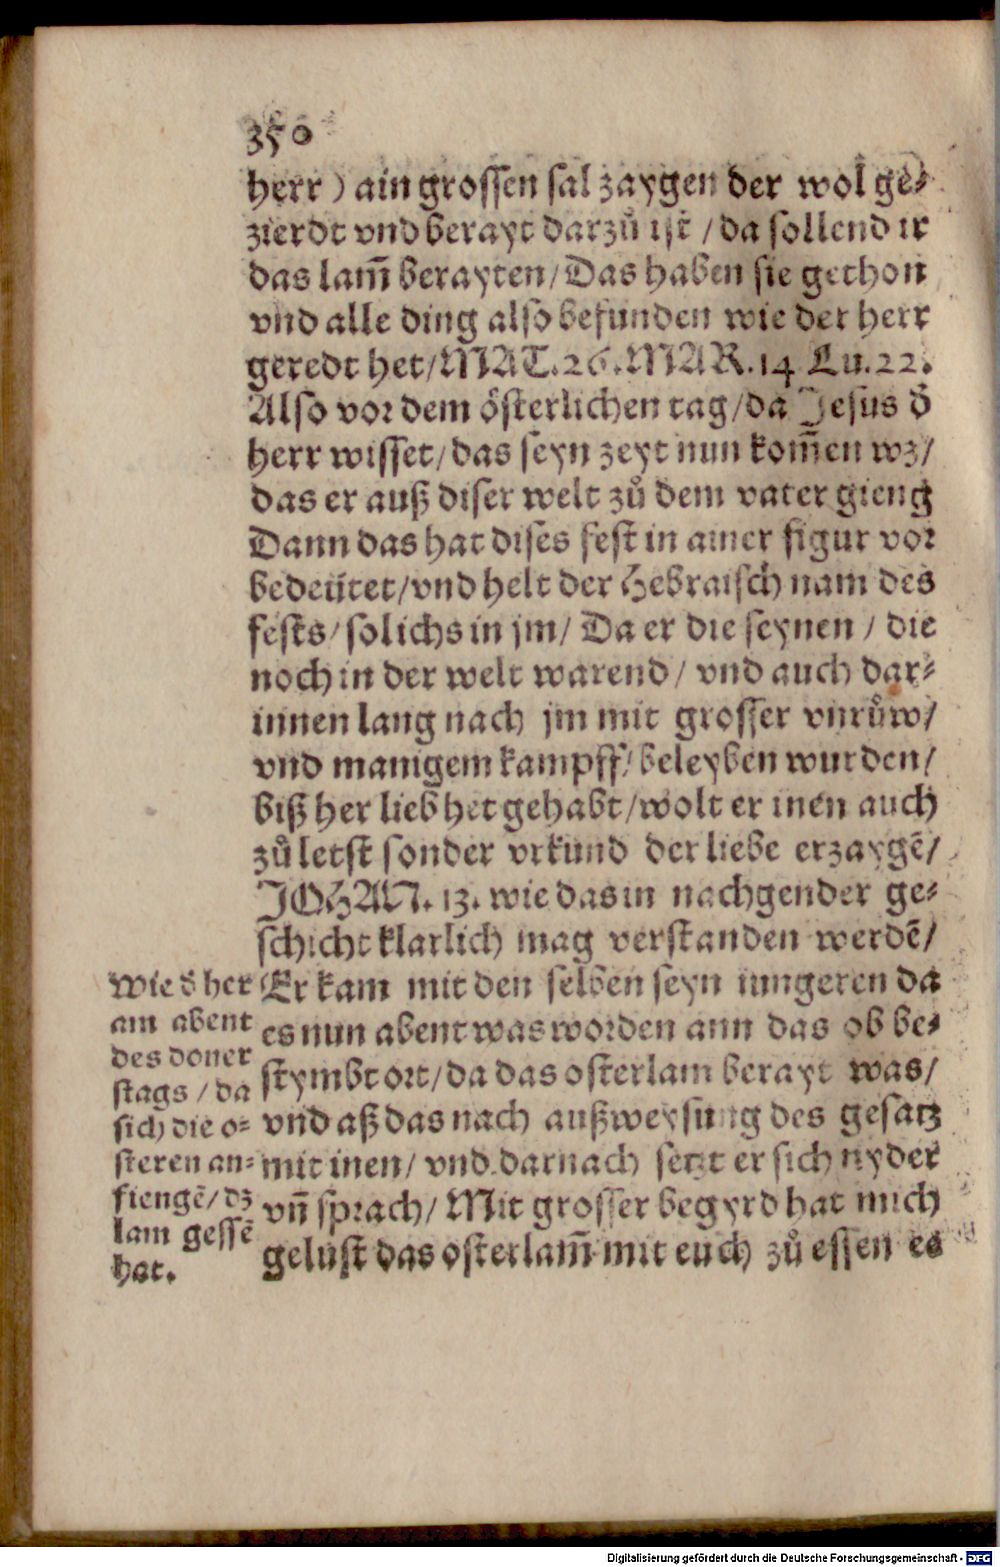 350
herr) ain grossen sal zaygen der wol ge⸗
zierdt vnd berayt darzů ist / da sollend ir
das lam̄ berayten / Das haben sie gethon
vnd alle ding also befunden wie der herr
geredt het / MAT. 26. MAR. 14 Lu. 22.
Also vor dem österlichen tag / da Jesus d̄
herr wisset / das seyn zeyt nun kom̄en wz /
das er auß diser welt zů dem vater gieng
Dann das hat dises fest in ainer figur vor
bedeütet / vnd helt der Hebraisch nam des
fests / solichs in jm / Da er die seynen / die
noch in der welt warend / vnd auch dar⸗
innen lang nach jm mit grosser vnrůw /
vnd manigem kampff / beleyben wurden /
biß her lieb het gehabt / wolt er inen auch
zů letst sonder vrkund der liebe erzaygē /
JOHAN. 13. wie das in nachgender ge⸗
schicht klarlich mag verstanden werdē /
Er kam mit den selben seyn iungeren da
es nun abent was worden ann das ob be⸗
stymbt ort / da das osterlam berayt was /
vnd aß das nach außweysung des gesatz
mit inen / vnd darnach setzt er sich nyder
vn̄ sprach / Mit grosser begyrd hat mich
gelust das osterlam̄ mit euch zů essen es
Wie d̄ her
am abent
des doner
stags / da
sich die o⸗
steren an⸗
fiengē / dz
lam gessē
hat.
Digitalisierung gefördert durch die Deutsche Forschungsgemeinschaft - DFG